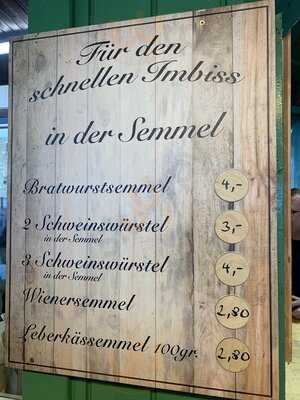 Für den
schnellen Imbiss
in der Semmel
Bratwurstsemmel 4,-
2 Schweinswürstel 3,-
in der Semmel
3 Schweinswürstel 4,-
in der Semmel
Wienersemmel 2,80
Leberkässemmel 100gr. 2,80